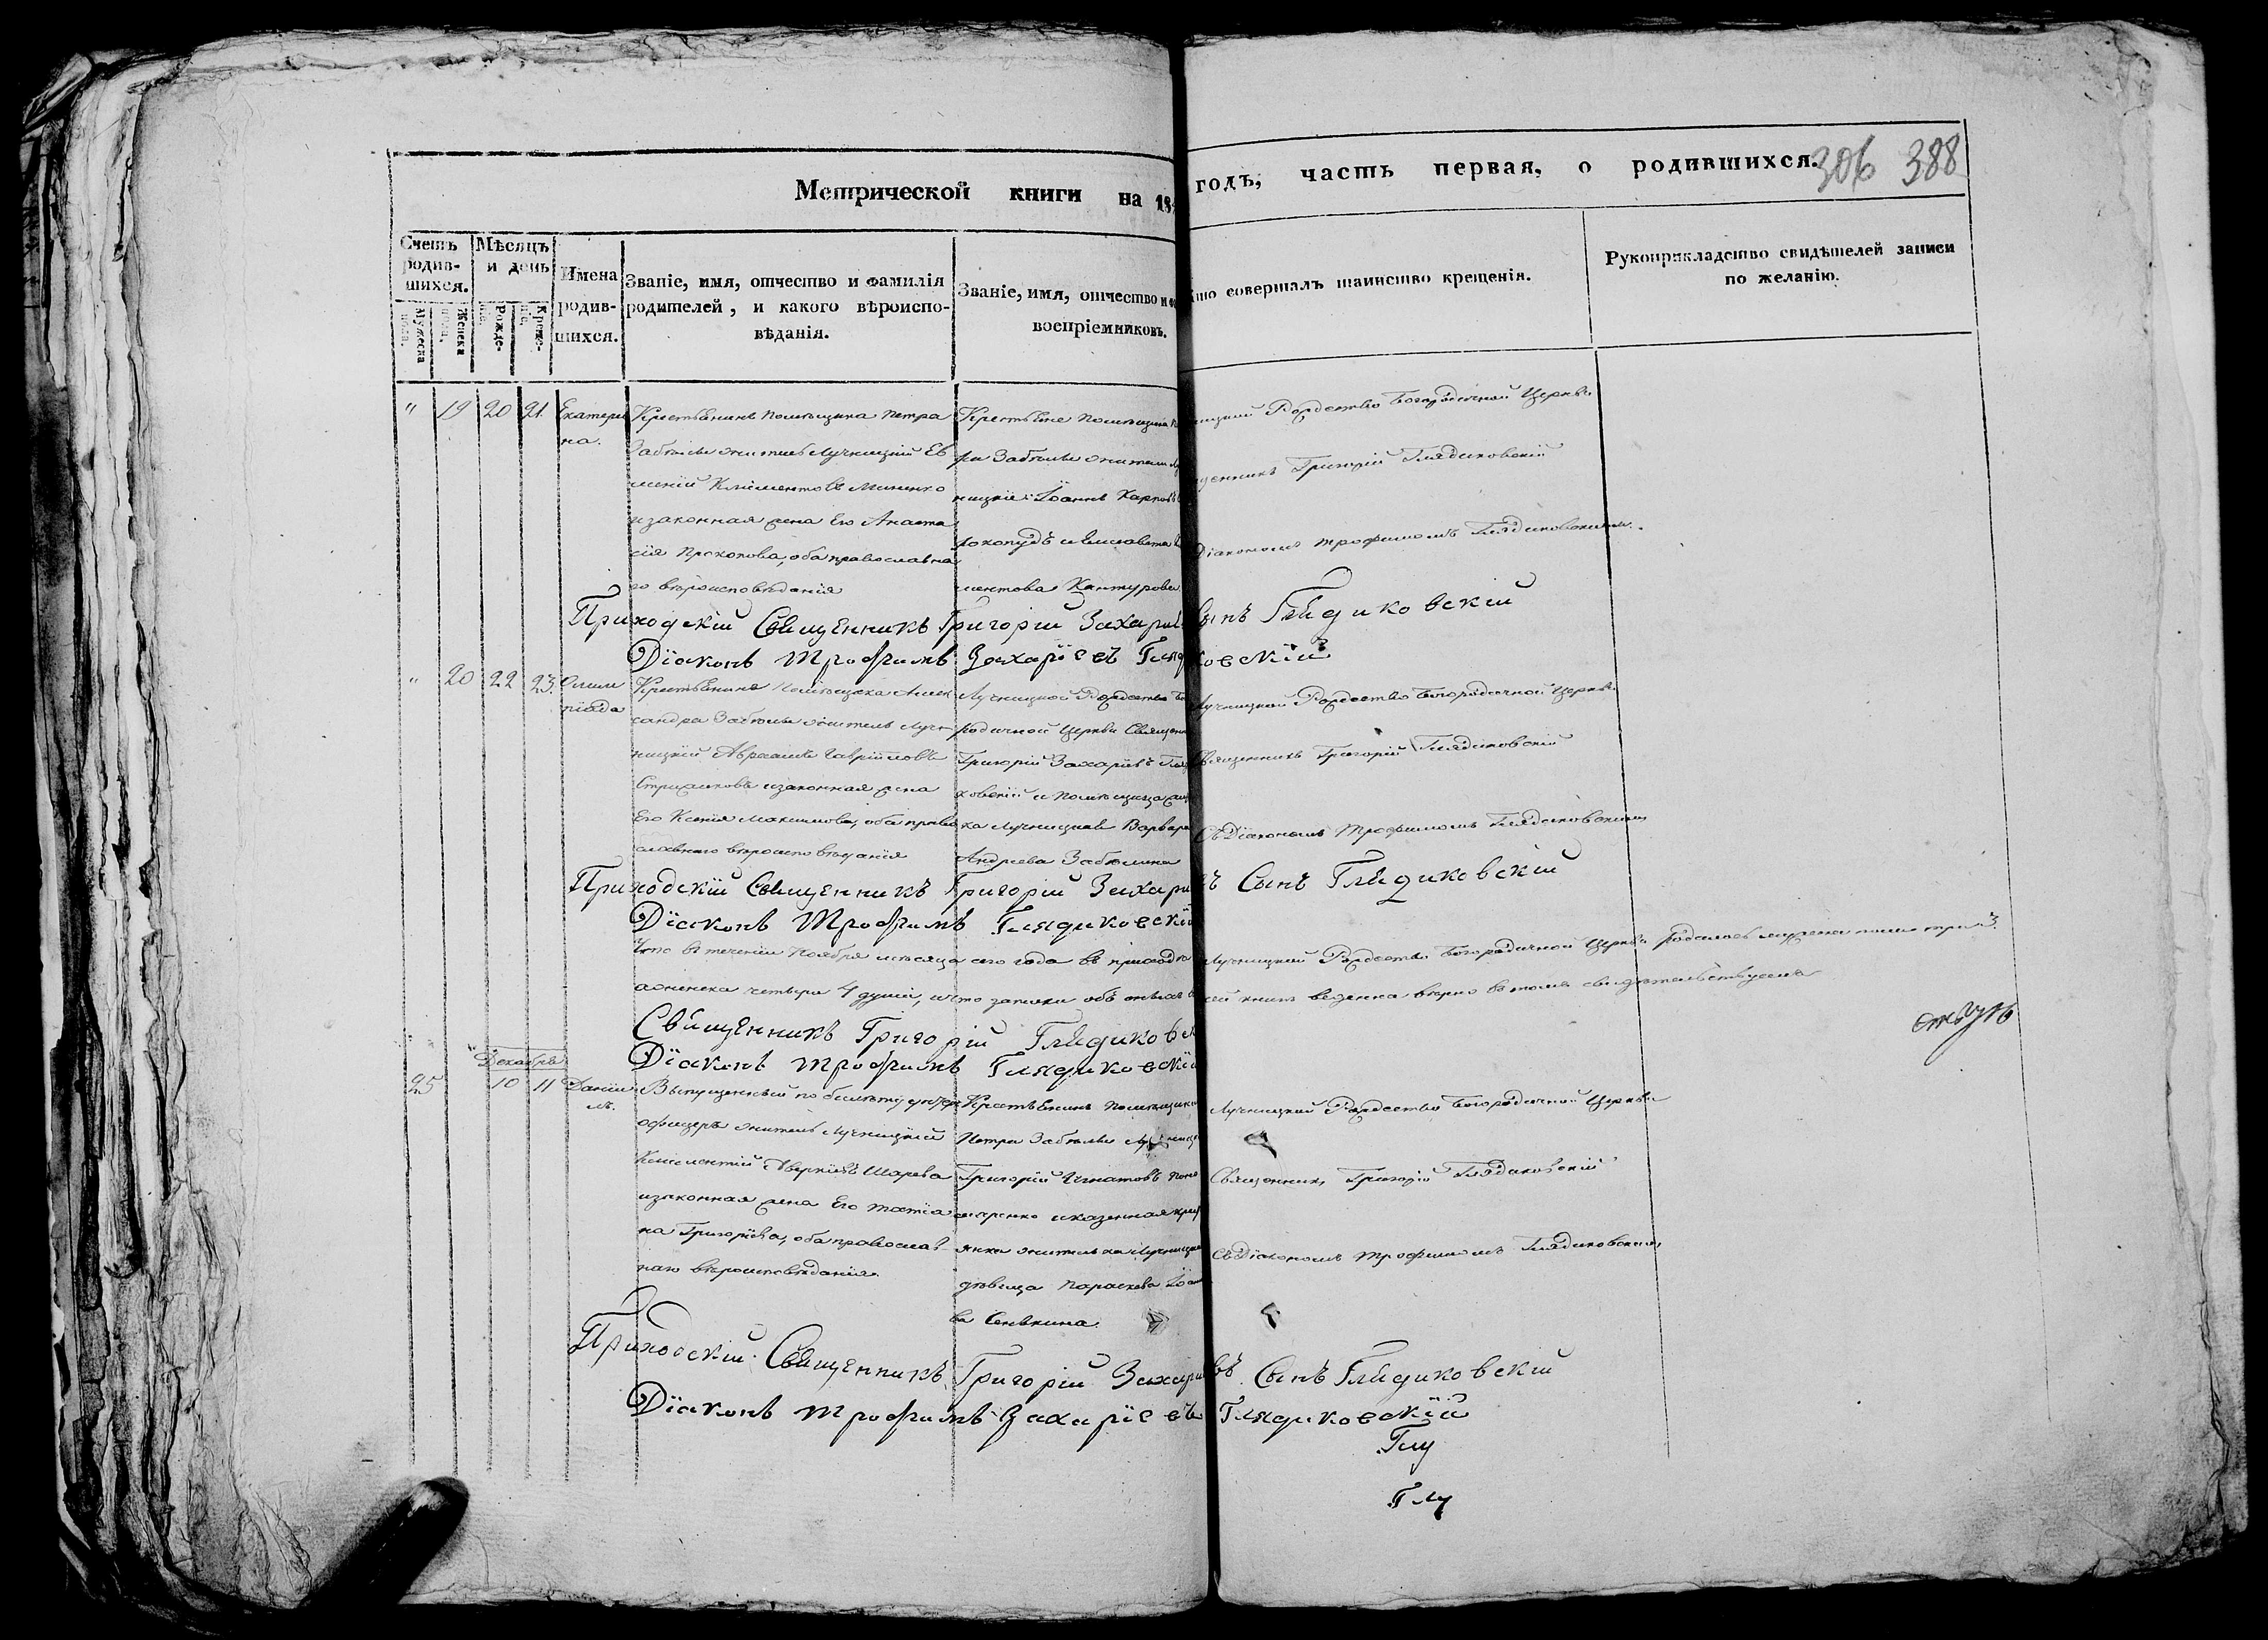 Метрической книги на 18
годъ, часть первая, о родившихся.
306 388
Счетъ родив-шихся.
Мѣсяцъ и день
Имена родив-шихся.
Званіе, имя, отчество и фамилія
родителей, и какого вѣроиспо-
вѣданія.
Званіе, имя, отчество и
воспріемниковъ.
то совершалъ таинство крещенія.
Рукоприкладство свидѣтелей записи
по желанію.
Мужеска пола.
Женска
Рожде-
Креще-
" 19 20 21. Екатери
на.
Крестьянинъ помѣщика Петра
Забѣлы житель Лучницкій Ев
меній Климентовъ Миненко
и законная жена Его Анаста
сія Прокопова, оба православна
го вѣроисповѣданія
Крестьяне помѣщика
ра Забѣлы жители
ницкіе: Іоаннъ Карповъ
и Елисавета
ментова Кантурова
ницкій Рождество Богородичной Церкви
щенникъ Григорій Глядиковскій
Діакономъ Трофимомъ Глядиковскимъ.
Приходскій Священникъ Григорій Захаріи Сынъ Глядиковскій
Діаконъ Трофимъ Захаріевъ Гляд ковскій
" 20 22 23. Олим
піада
Крестьянинъ помѣщика Алек
сандра Забѣлы житель Луч-
ницкій Авраамъ Гавріиловъ
Стрижаковъ и законная жена
Его Ксенія Максимова, оба право
славнаго вѣроисповѣданія
Лучницкой Рождество Бо
родичной Церкви Священ
Григорій Захаріевъ Гляд
ковскій и помѣщица
ка Лучницкая Варвара
Андреева Забѣлина
Лучницкой Рождество Богородичной Церкви
Священникъ Григорій Глядиковскій
Съ Діакономъ Трофимомъ Глядиковскимъ
Приходскій Священникъ Григорій Захаріи ъ Сынъ Глядиковскій
Діаконъ Трофимъ Глядиковскій
Что въ теченіи Ноября мѣсяца сего года въ приходѣ Лучницкой Рождество Богородичной Церкви родилось мужеска пола три 3.
а женска четыри 4 души, и что записки объ оныхъ въ сей книгѣ веденна вѣрно въ томъ свидѣтельствуемъ
Священникъ Григорій Глядиковск
Діаконъ Трофимъ Глядиковскій
Декабрь
25 " 10 11 Даніи
лъ.
Выпущенный по билѣту унтеръ
офицеръ житель Лучницкій
Климентій Аверкіевъ Шарева
и законная жена Его Татіа
на Григоріева, оба православ
наго вѣроисповѣданія.
Крестьянинъ помѣщика
Петра Забѣлы
Григорій Игнатовъ Поно
маренко и казенная крест
янка жителька Лучницкая
дѣвица Параскева Іоан
ва Сенькина.
Лучницкой Рождество Богородичной Церкви
Священникъ Григорій Глядиковскій
Съ Діакономъ Трофимомъ Глядиковскимъ
Приходскій Священникъ Григорій Захаріевъ Сынъ Глядиковскій
Діаконъ Трофимъ Захаріевъ Глядиковскій